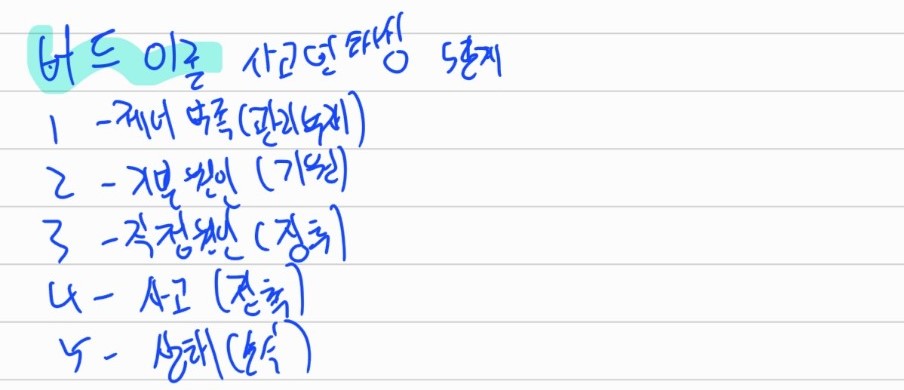 버드 이론 사고연쇄성 5단계
1 - 제어 부족 (관리부재)
2 - 기본 원인 (기원)
3 - 직접원인 (징후)
4 - 사고 (접촉)
5 - 상해 (손실)